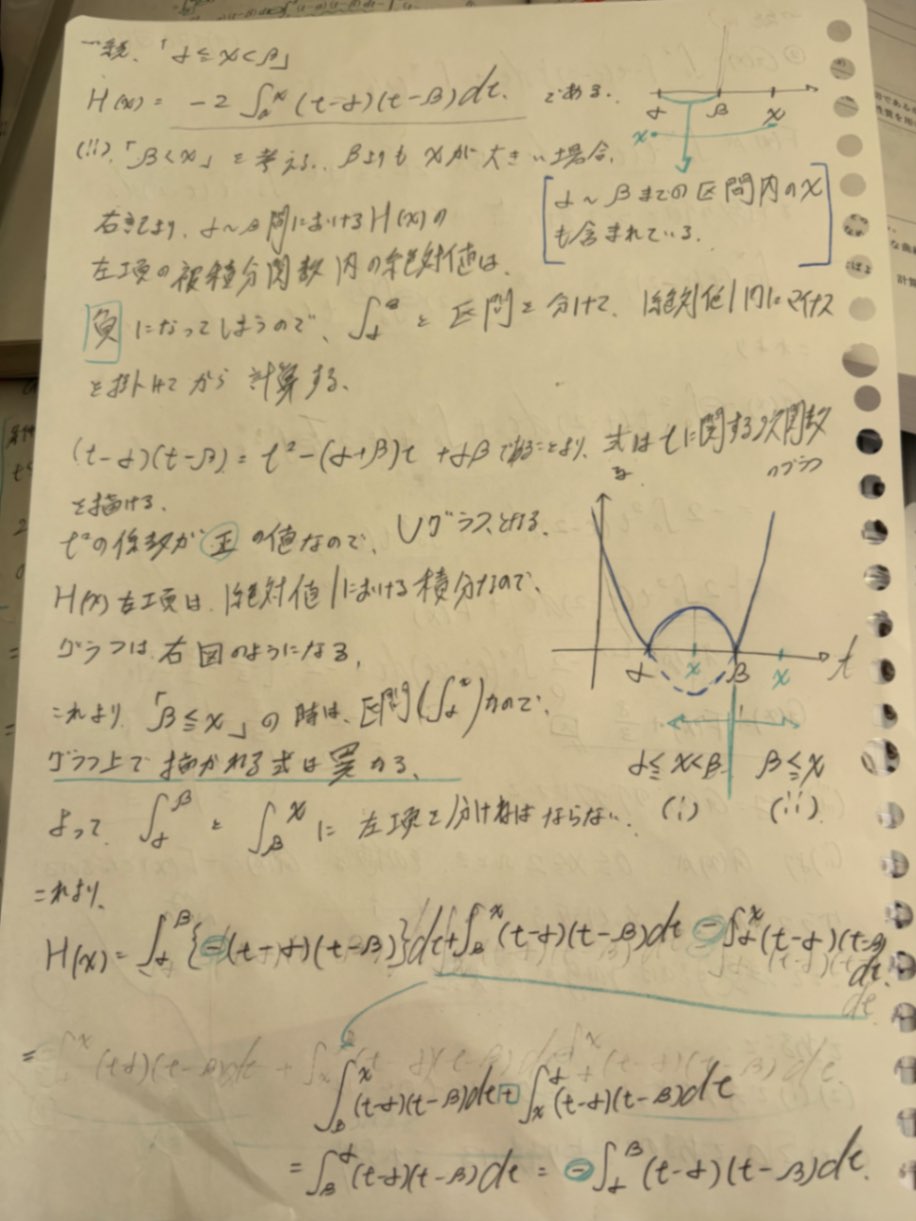 「α≦x<β」
H(x) = -2∫α^x (t-α)(t-β)dt. である.
α β x
x
(ii).「β<x」と考える. βよりも xが大きい場合.
[α～βまでの区間内のx
も含まれている.]
右きてより. α～β間における H(x)の
左項の被積分関数内の絶対値は.
負になってしまうので、∫α^βと区間を分けて. |絶対値|内にマイナス
を掛けてから計算する.
(t-α)(t-β) = t²-(α+β)t+αβであることより、式はtに関する2次関数
のグラフ
を描ける.
t²の係数が正の値なので、Uグラフとなる.
H(x)左項は、|絶対値|における積分なので、
グラフは右図のようになる.
α x β x t
これより「β≦x」の時は、区間(∫α^x)なので、
グラフ上で描かれる式は異なる.
α≦x<β β≦x
(i) (ii)
よって ∫α^β と ∫β^x に左項を分けねばならない.
これより.
H(x) = ∫α^β{-(t-α)(t-β)}dt+∫β^x (t-α)(t-β)dt - ∫α^x (t-α)(t-β)dt.
=
∫β^x (t-α)(t-β)dt + ∫x^α (t-α)(t-β)dt
= ∫β^α (t-α)(t-β)dt = -∫α^β (t-α)(t-β)dt.